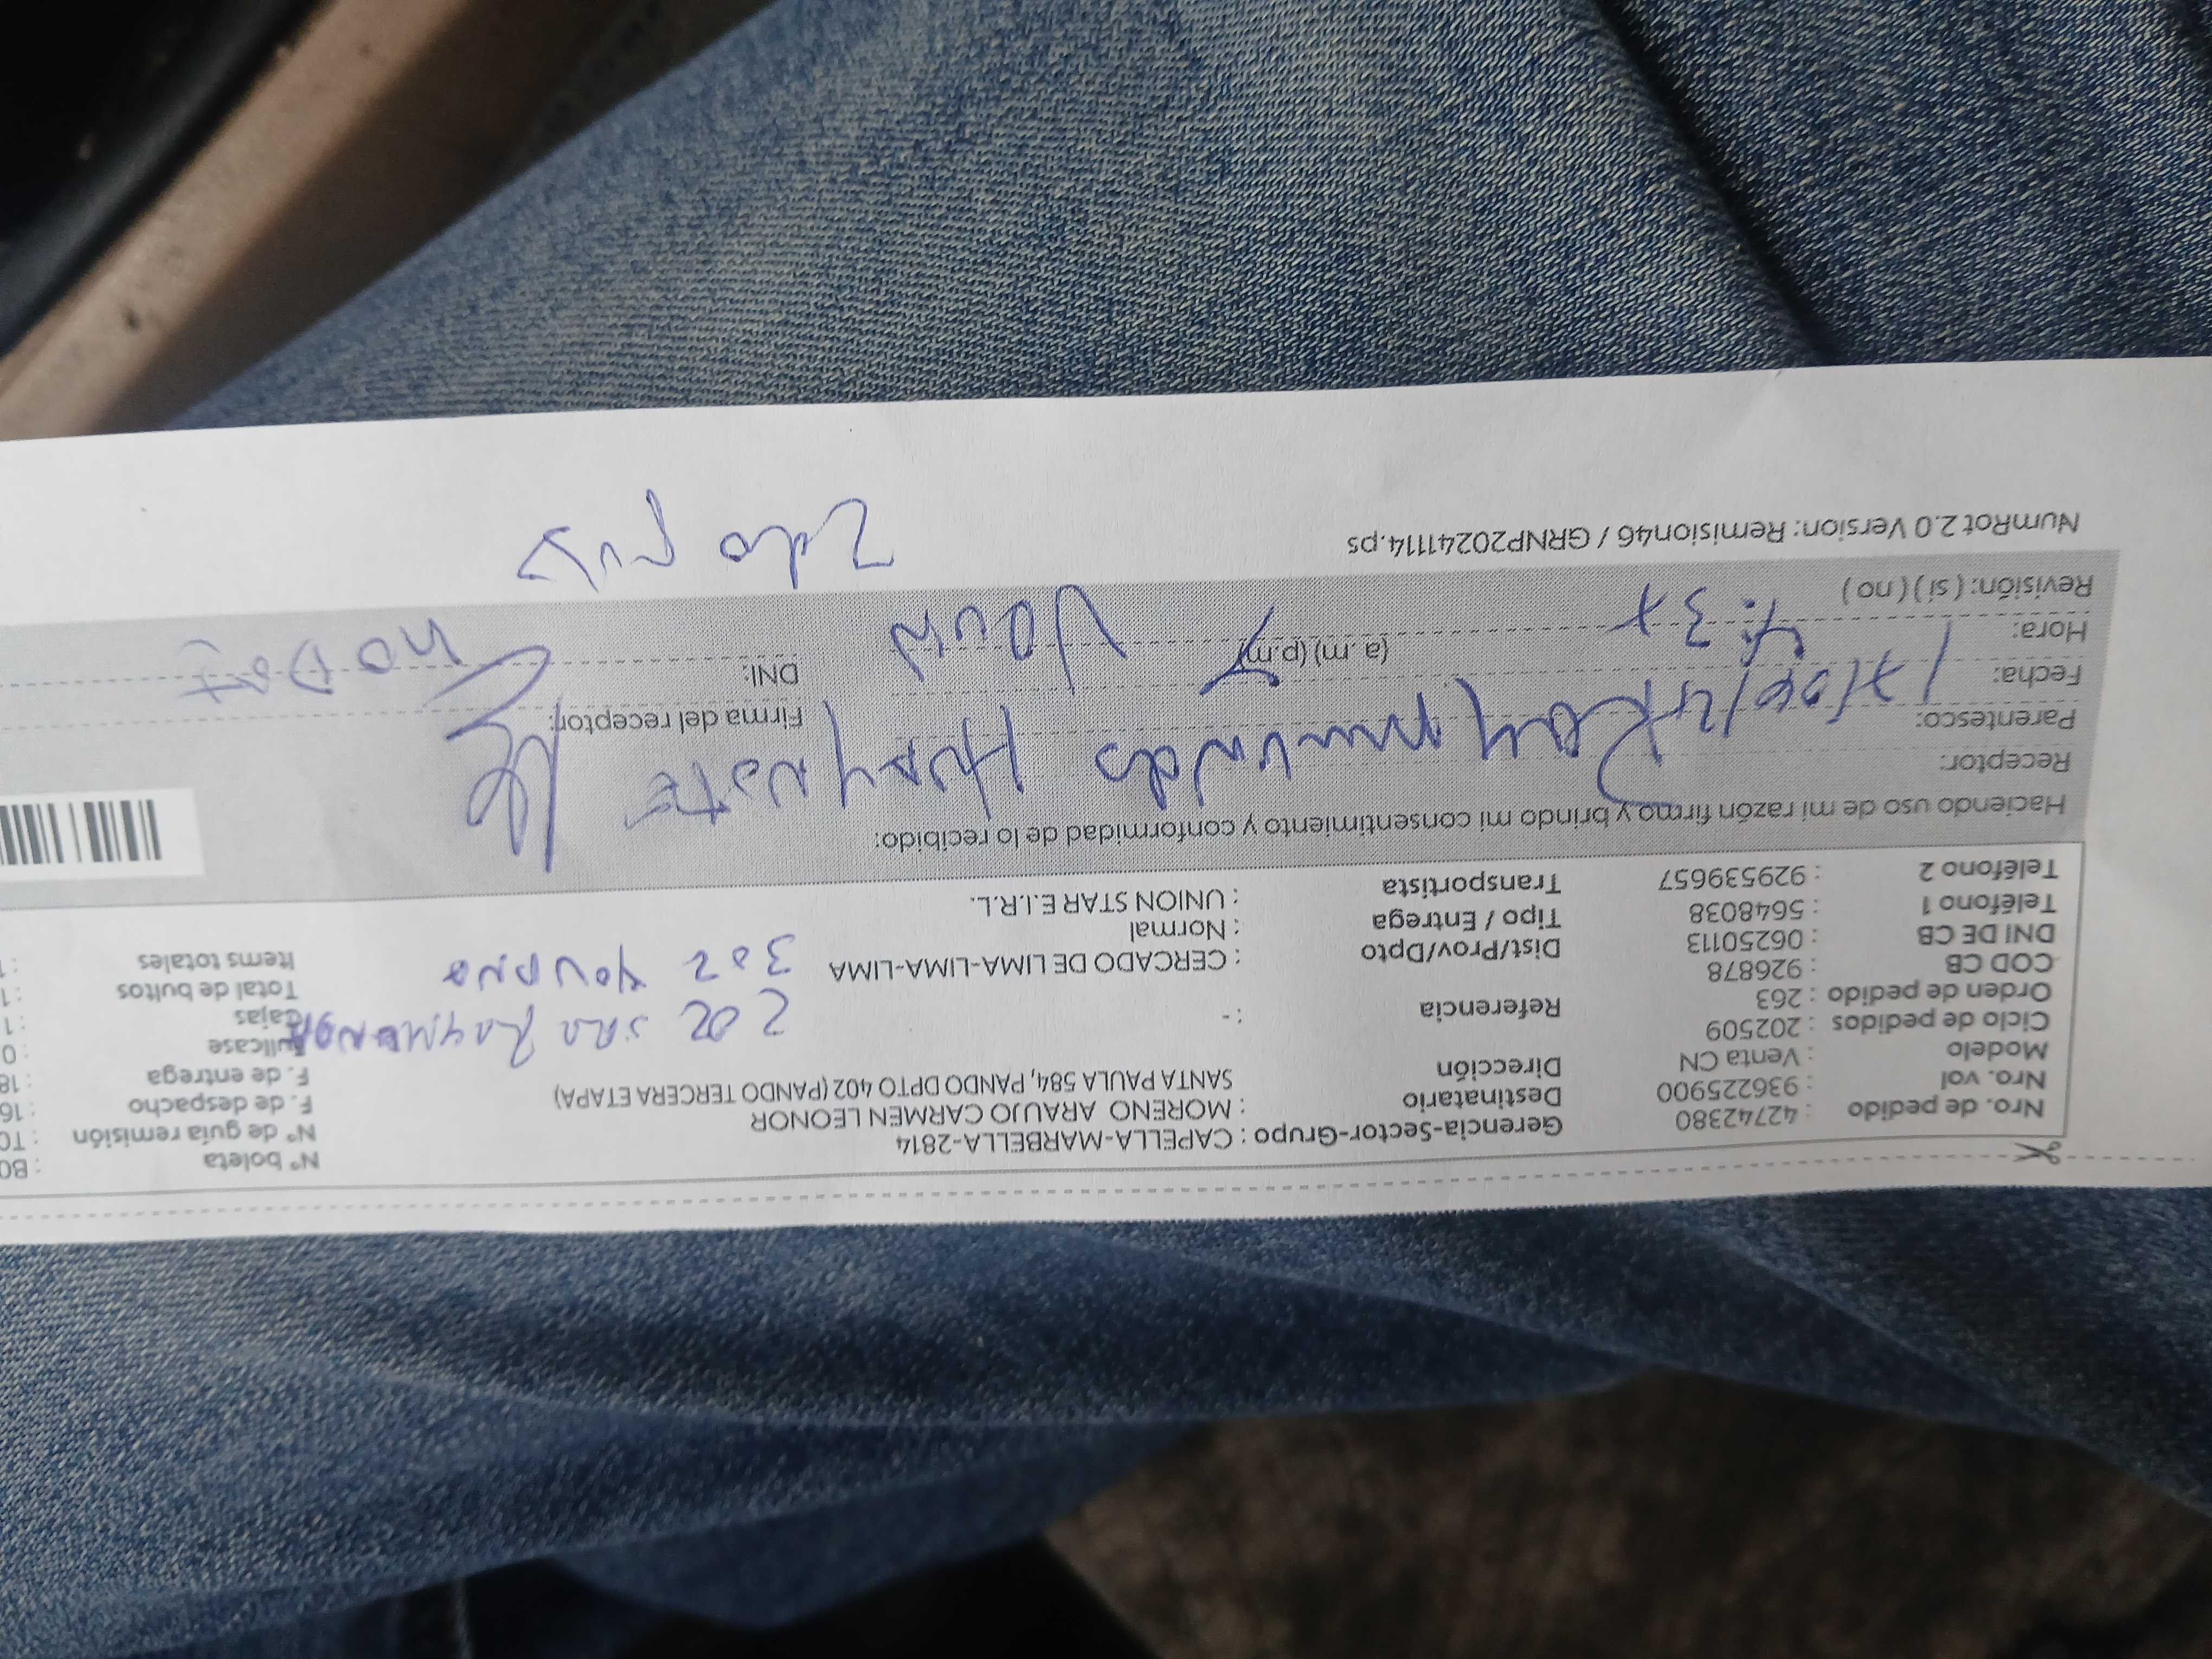 Nro. de pedido : 42742380
Nro. vol : 936225900
Modelo : Venta CN
Ciclo de pedidos : 202509
Orden de pedido : 263
COD CB : 926878
DNI DE CB : 06250113
Teléfono 1 : 5648038
Teléfono 2 : 929539657
Gerencia-Sector-Grupo : CAPELLA-MARBELLA-2814
Destinatario : MORENO ARAUJO CARMEN LEONOR
Dirección SANTA PAULA 584, PANDO DPTO 402 (PANDO TERCERA ETAPA)
Referencia : -
Dist/Prov/Dpto : CERCADO DE LIMA-LIMA-LIMA
Tipo / Entrega : Normal
Transportista : UNION STAR E.I.R.L.
202 SRA RAYMUNDA
302
N° boleta : B0
N° de guía remisión : T0
F. de despacho : 16
F. de entrega : 18
Fullcase : 0
Cajas : 1
Total de bultos : 1
Items totales : 1
Haciendo uso de mi razón firmo y brindo mi consentimiento y conformidad de lo recibido:
Receptor: Raymunda
Parentesco:
Fecha:
Hora: 4:37 (a. m) (p.m)
Revisión: ( si ) ( no )
Firma del receptor:
DNI: NO
NumRot 2.0 Version: Remision46 / GRNP20241114.ps
2do Piso